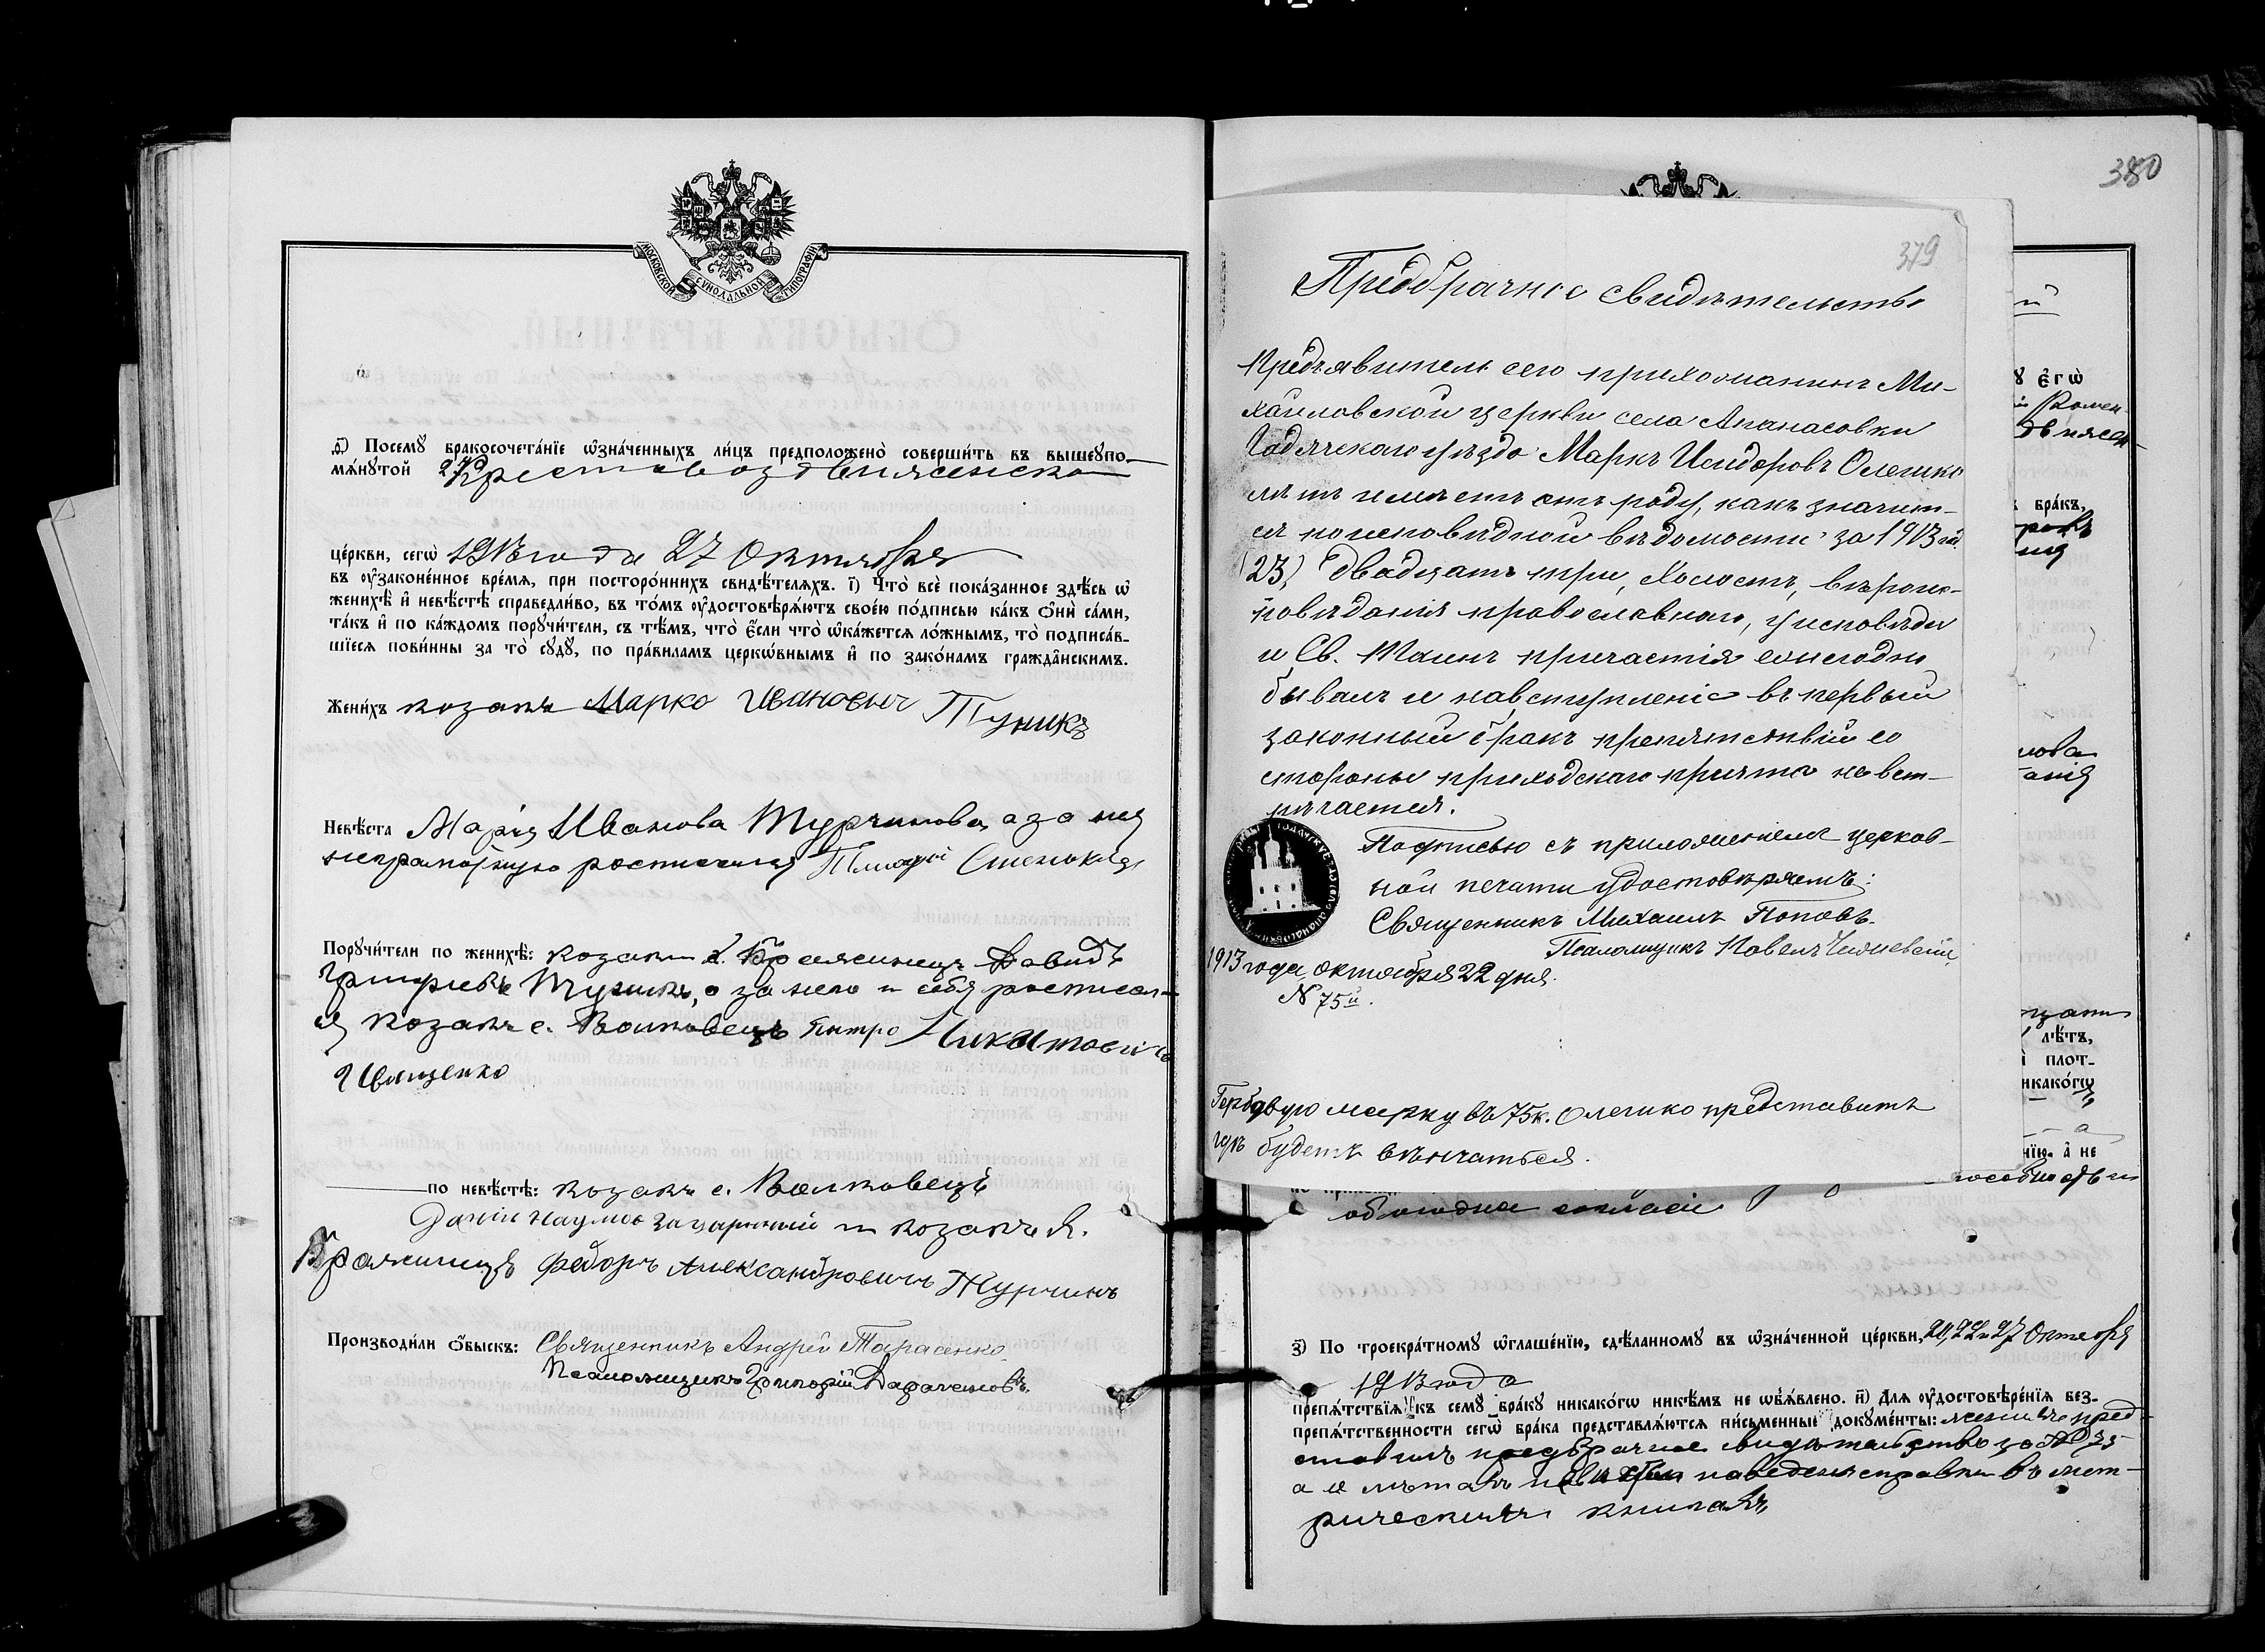 МОСКОВСКОЙ СѴНОДАЛЬНОЙ ТИПОГРАФІИ
Посемꙋ̀ бракосочета́нїе ѡ҆зна́ченныхъ ли́цъ предположено̀ соверши́ть въ вышеупо-
мѧ́нꙋтой Крестовоздвиженской
це́ркви, сегѡ̀ 1913 года 27 Октября
въ ᲂу҆зако́ненное вре́мѧ, при посторо́ннихъ свидѣ́телѧхъ. і҃) Что̀ всѐ пока́занное здѣ́сь ѡ҆
женихѣ̀ и҆ невѣ́стѣ справедли́во, въ то́мъ ᲂу҆достовѣрѧ́ютъ свое́ю по́дписью ка́къ ѻ҆нѝ са́ми,
та́къ и҆ по ка́ждомъ порꙋчи́тели, съ тѣ́мъ, что̀ є҆́сли что̀ ѡ҆ка́жетсѧ ло́жнымъ, то̀ подписа́в-
шїесѧ пови́нны за то̀ сꙋдꙋ̀, по пра́виламъ церко́внымъ и҆ по зако́намъ гражда́нскимъ.
Жени́хъ козакъ Марко Иванович Туникъ
Невѣ́ста Марія Иванова Турчинова, а за нея
неграмотную росписался
Порꙋчи́тели по женихѣ̀: козакъ с. Бражинецъ Давидъ
Туникъ, а за него и себя росписал-
ся козакъ с. Волковецъ Петро Никитовичъ
Иващенко
по невѣ́стѣ: козакъ с. Волковецъ
Даніил Наумов и козакъ с.
Бражинецъ Федоръ Александровичъ Журчинъ
Производи́ли ѻ҆́быскъ: Священникъ Андрей Тарасенко
Псаломщикъ Григорій
380
379
Предбрачное свидѣтельство
Предъявитель сего прихожанинъ Ми-
хаиловской церкви села Апанасовки
Гадячскаго уѣзда Маркъ Исидоровъ Олешко
лѣтъ имѣетъ отъ роду, какъ значит-
ся по исповѣдной вѣдомости за 1913 год
(23) двадцать три, холостъ, вѣроис-
повѣданія православнаго, у исповѣди
и Св. Таинъ причастія ежегодно
бывалъ и на вступленіе въ первый
законный бракъ препятствій со
стороны приходскаго причта не вст-
рѣчается.
Подписью съ приложеніемъ церков-
ной печати удостовѣряемъ:
Священникъ Михаилъ Поповъ.
Псаломщикъ Павелъ
1913 года октября 22 дня.
N 75й.
Гербовую марку въ 75 к. Олешко представитъ
гдѣ будетъ вѣнчаться.
є҆гѡ̀
бра́къ,
лѣ́тъ,
плот-
никако́гѡ
обоюдное согласіе
з҃) По троекра́тномꙋ ѡ҆глаше́нїю, сдѣ́ланномꙋ въ ѡ҆зна́ченной це́ркви, 20, 22 и 27 Октября
1913 года
препѧ́тствїѧ къ семꙋ̀ бра́кꙋ никако́гѡ никѣ́мъ не ѡ҆б̾ѧ́влено. и҃) Длѧ ᲂу҆достовѣре́нїѧ без-
препѧ́тственности сегѡ̀ бра́ка представлѧ́ютсѧ пи́сьменные докꙋме́нты: женихъ пред-
ставилъ предбрачное свидѣтельство за № 75
а о лѣтахъ невѣсты наведена справка въ мет-
рическихъ книгахъ